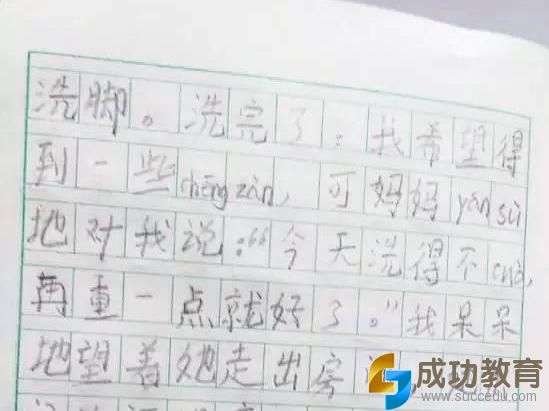 洗脚。洗完了,我希望得
到一些chēng zàn,可妈妈yán sù
地对我说:“今天洗得不cuò,
再重一点就好了。”我呆呆
地望着她走出房
成功教育
www.succedu.com